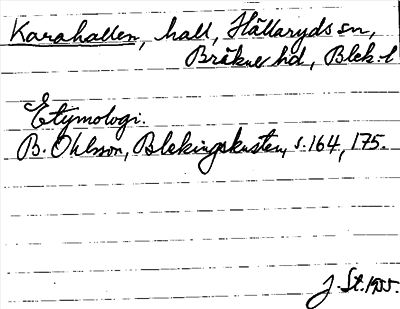 Karahallen, hall, Hällaryds sn,
Bräkne hd, Blek. l
Etymologi.
B. Ohlsson, Blekingekusten, s. 164, 175.
J. St. 1955.